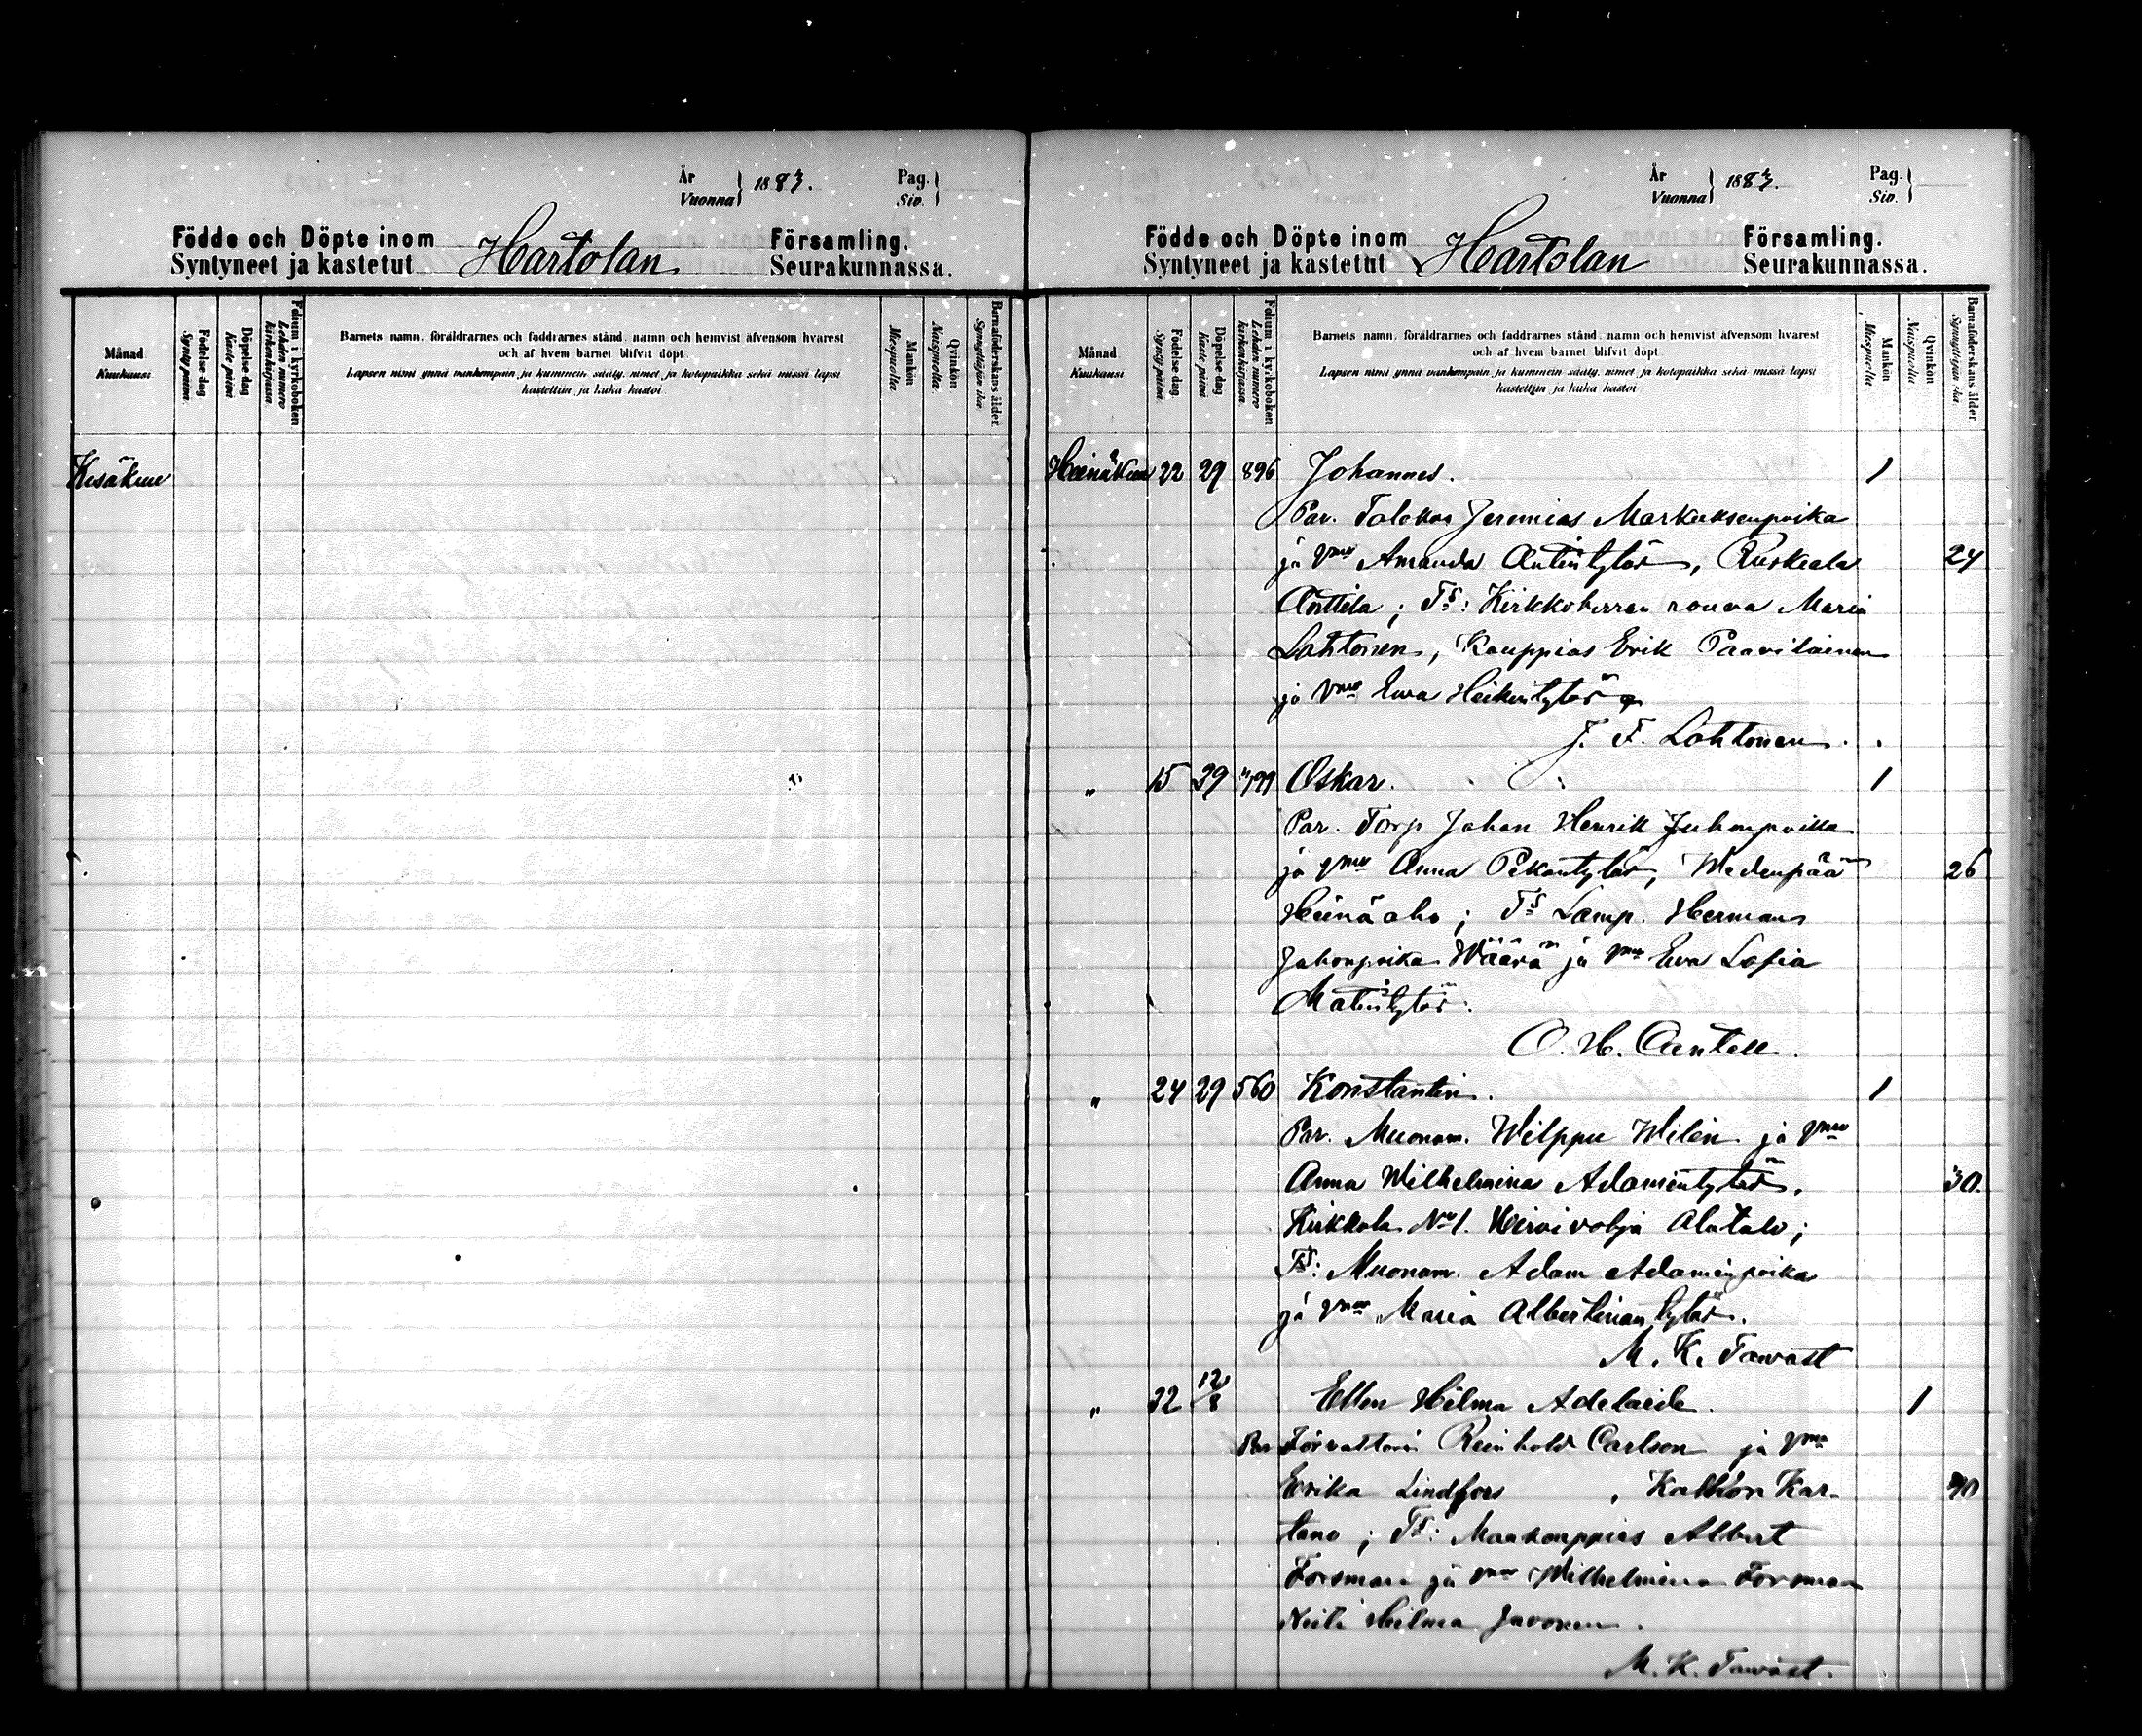 År
Vuonna } 1883.
Pag.
Siv. }
Födde och Döpte inom
Syntyneet ja kastetut Hartolan Församling.
Seurakunnassa.
Månad
Kuukausi
Födelse dag
Synty päivä.
Döpelse dag
Kaste päivä
Folium i kyrkoboken
Lehden numero
kirkonkirjassa.
Barnets namn, föräldrarnes och faddrarnes stånd, namn och hemvist äfvensom hvarest
och af hvem barnet blifvit döpt.
Lapsen nimi ynnä vanhempain ja kummein sääty, nimet ja kotopaikka sekä missä lapsi
kastettiin ja kuka kastoi.
Mankön
Miespuolia.
Qvinkön
Naispuolia.
Barnaföderskans ålder
Synnyttäjän ikä.
Kesäkuu
År
Vuonna } 1883.
Pag.
Siv. }
Födde och Döpte inom
Syntyneet ja kastetut Hartolan Församling.
Seurakunnassa.
Månad
Kuukausi
Födelse dag
Synty päivä.
Döpelse dag
Kaste päivä
Folium i kyrkoboken
Lehden numero
kirkonkirjassa.
Barnets namn, föräldrarnes och faddrarnes stånd, namn och hemvist äfvensom hvarest
och af hvem barnet blifvit döpt.
Lapsen nimi ynnä vanhempain ja kummein sääty, nimet ja kotopaikka sekä missä lapsi
kastettiin ja kuka kastoi.
Mankön
Miespuolia.
Qvinkön
Naispuolia.
Barnaföderskans ålder
Synnyttäjän ikä.
Heinäkuu 22 29 896 Johannes. 1
Par. Talokas Jeremias Markuksenpoika
ja vmo Amanda Antintytär, Ruskeala 24
Anttila; Ts: Kirkkoherran rouva Maria
Lahtonen, Kauppias Erik Paavilainen
ja Vmo Eeva Heikintytär
J. F. Lahtonen.
" 15 29 Oskar. 1
Par. Torp Johan Henrik Juhonpoika
ja vmo Anna Pekantytär, Wedenpää 26
Heinäaho; Ts Lamp. Herman
Juhonpoika Wäärä ja vmo Eva Sofia
Matintytär.
O. H. Cantell.
" 24 29 560 Konstantin. 1
Par. Muonam. Wilppu Wilén ja vmo
Anna Wilhelmina Adamintytär. 30.
Kirkkola No 1. Hirvivolja Alatalo;
Ts: Muonam. Adam Adaminpoika
ja vmo Maria Albertinantytär.
M. K. Tawast
" 22 12/8 Ellen Hilma Adelaide. 1
Par Förvaltori Reinhold Carlson ja vmo
Erika Lindfors, Kalhon Kar- 40
tano; Ts: Maakauppias Albert
Forsman ja vmo Wilhelmina Forsman
Neiti Hilma Javonen.
M. K. Tawast.